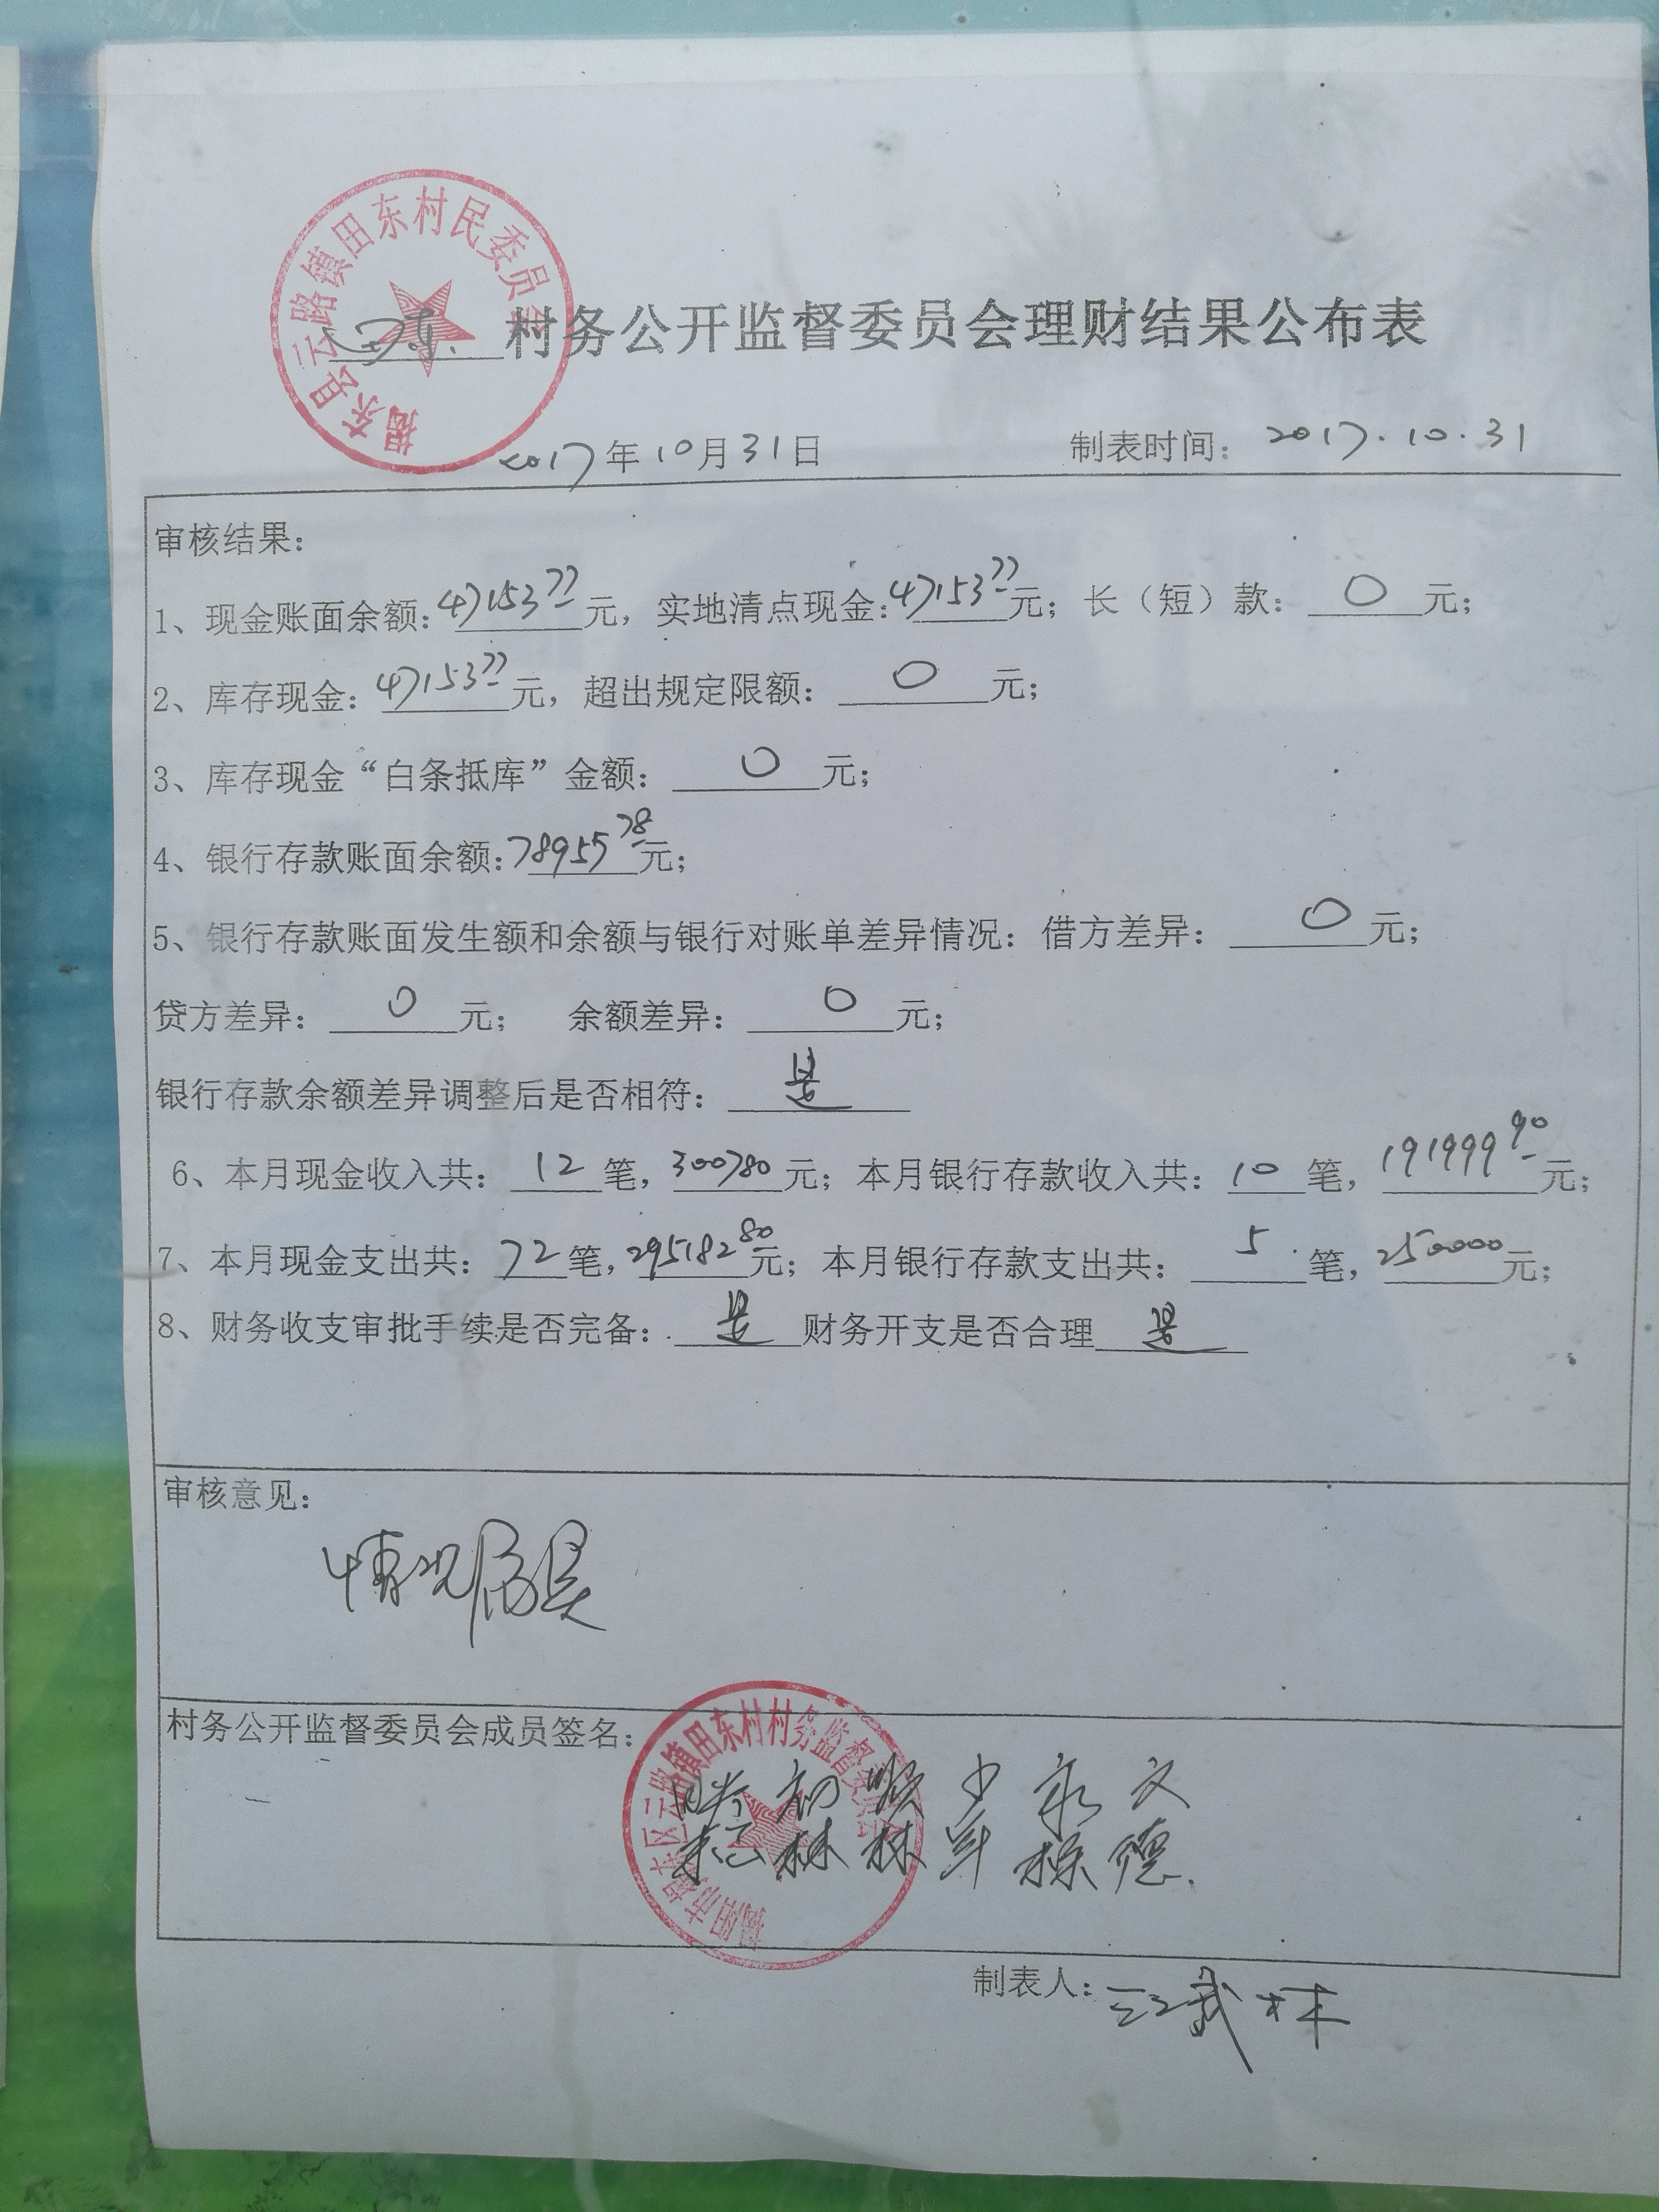 揭东县云路镇田东村民委员会
田东 村务公开监督委员会理财结果公布表
2017年10月31日 制表时间：2017.10.31
审核结果：
1、现金账面余额：47153.77元，实地清点现金：47153.77元；长（短）款：0元；
2、库存现金：47153.77元，超出规定限额：0元；
3、库存现金“白条抵库”金额：0元；
4、银行存款账面余额：78955.78元；
5、银行存款账面发生额和余额与银行对账单差异情况：借方差异：0元；
贷方差异：0元； 余额差异：0元；
银行存款余额差异调整后是否相符：是
6、本月现金收入共：12笔，300780元；本月银行存款收入共：10笔，191999.90元；
7、本月现金支出共：72笔，295182.80元；本月银行存款支出共：5笔，250000元；
8、财务收支审批手续是否完备：是 财务开支是否合理是
审核意见：
情况属实
村务公开监督委员会成员签名：
揭阳市揭东区云路镇田东村村务监督委员会
初林 顺林 少 永 文德
制表人：江武林